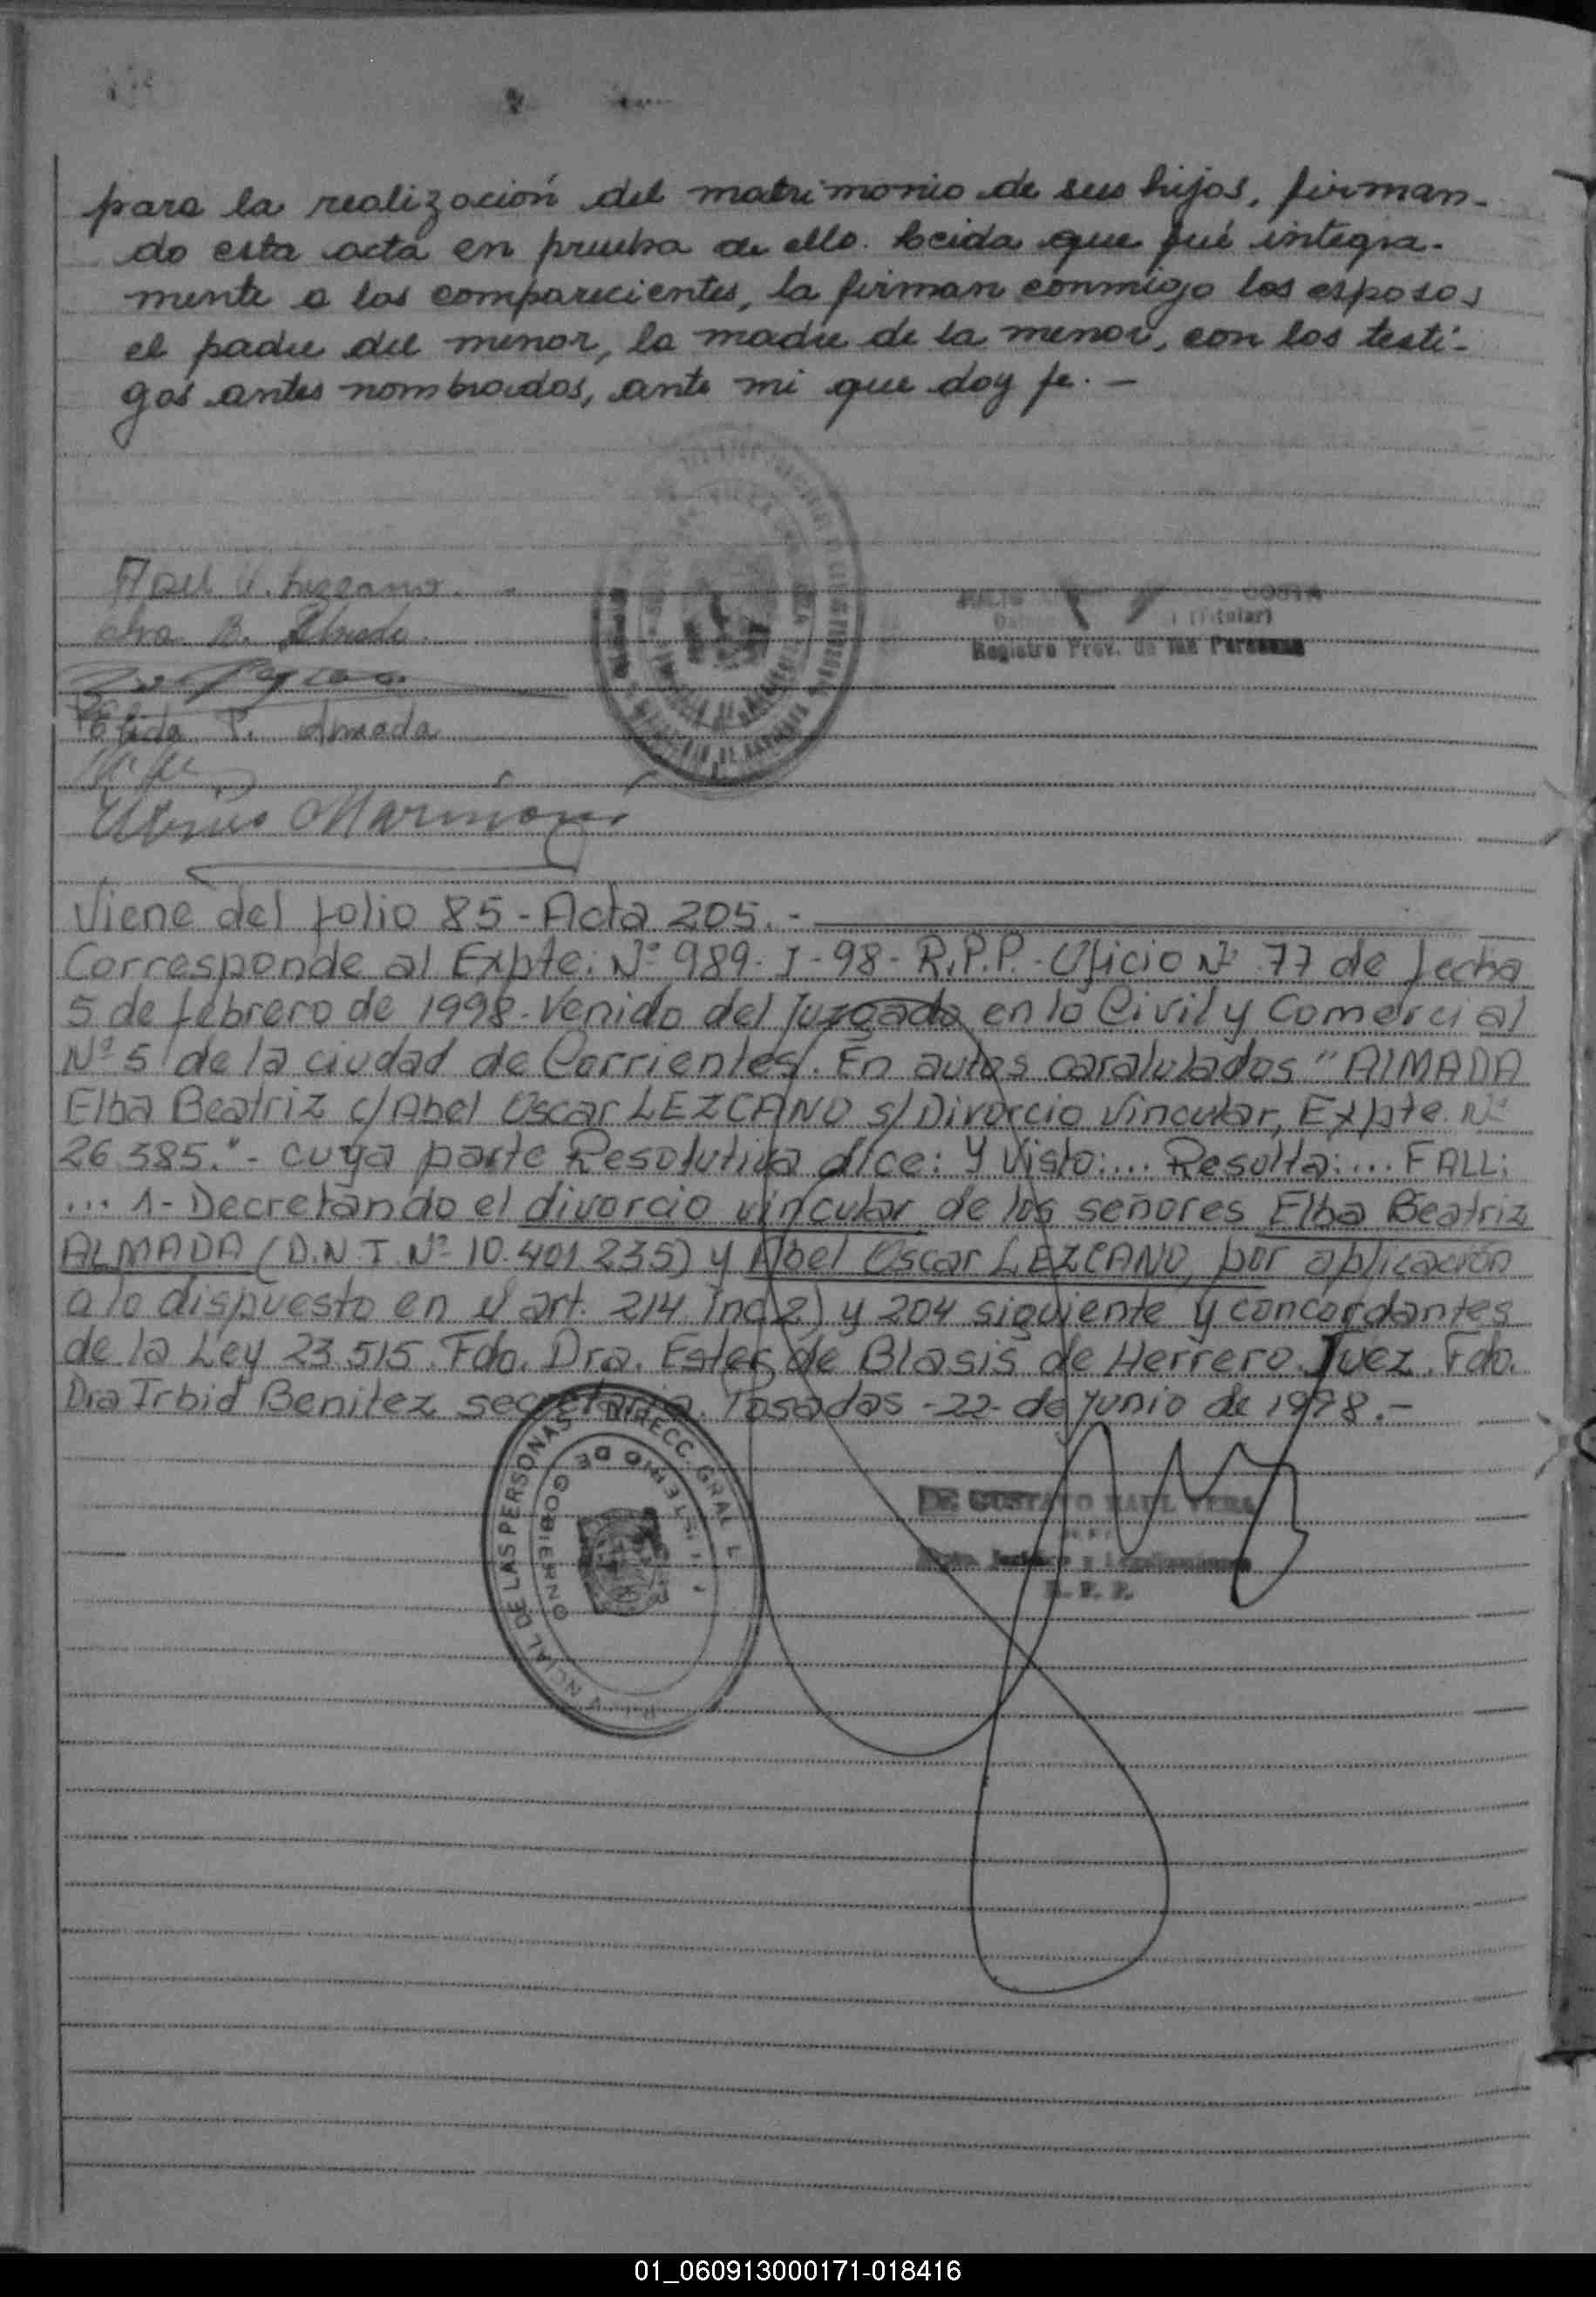 para la realización del matrimonio de sus hijos, firman-
do esta acta en prueba de ello. Leida que fué integra-
mente a los comparecientes, la firman conmigo los esposos
el padre del menor, la madre de la menor, con los testi-
gos antes nombrados, ante mi que doy fe. —
(Titular)
Registro Prov. de las Personas
Elba B. Almada
Elida P. Almada
Viene del folio 85 - Acta 205. -
Corresponde al Expte: Nº 989 - I - 98 - R.P.P. - Oficio Nº 77 de fecha
5 de febrero de 1998. Venido del Juzgado en lo Civil y Comercial
Nº 5 de la ciudad de Corrientes. En autos caratulados "ALMADA
Elba Beatriz c/ Abel Oscar LEZCANO s/ Divorcio Vincular, Expte. Nº
26.385." - cuya parte Resolutiva dice: Y Visto: ... Resulta: ... FALL:
... 1 - Decretando el divorcio vincular de los señores Elba Beatriz
ALMADA (D.N.I. Nº 10.401.235) y Abel Oscar LEZCANO, por aplicación
a lo dispuesto en el art. 214 Inc 2) y 204 siguiente y concordantes
de la Ley 23.515. Fdo. Dra. Ester de Blasis de Herrero. Juez. Fdo.
Dra Irbid Benitez secretaria. Posadas - 22 - de Junio de 1998. -
DIRECC. GRAL
NCIAL DE LAS PERSONAS
MINISTERIO DE GOBIERNO
GUSTAVO RAUL VERA
R. P. P.
01_060913000171-018416